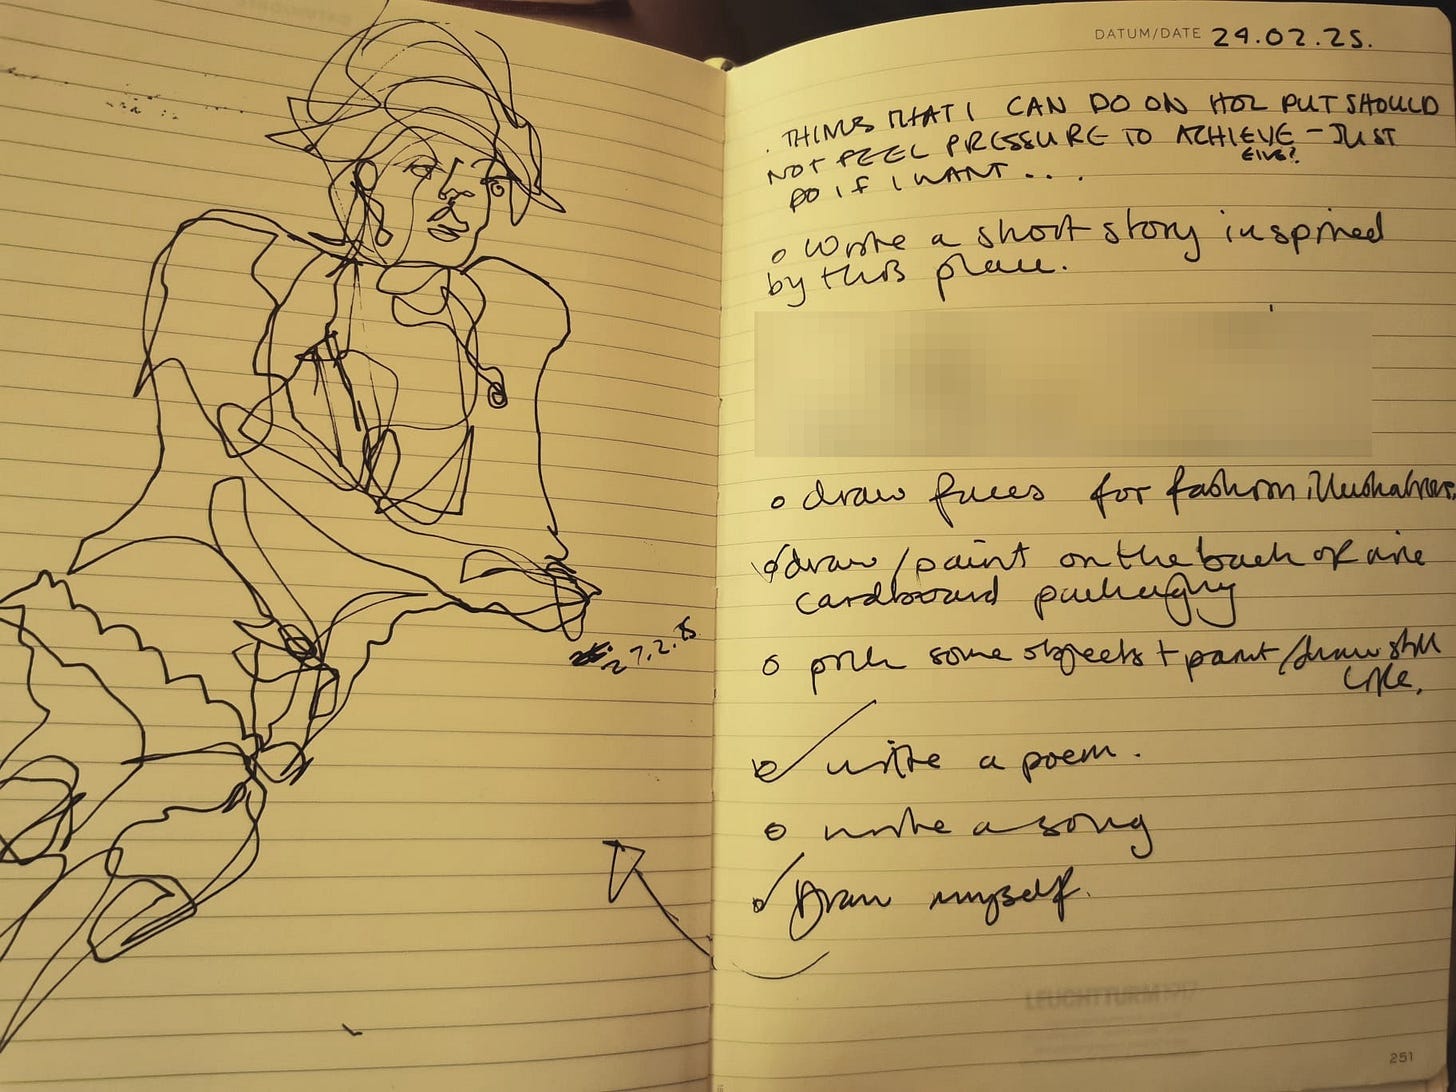 27.2.25
DATUM/DATE 24.02.25.
. THINGS THAT I CAN DO ON HOL BUT SHOULD
NOT FEEL PRESSURE TO ACHIEVE - JUST
EIVE?
DO IF I WANT ...
o Write a short story inspired
by this place.
o draw faces for fashion illustrations.
o draw / paint on the back of
cardboard packaging
o pick some objects + paint / draw still
life.
o write a poem.
o write a song
o Draw myself.
LEUCHTTURM1917
251